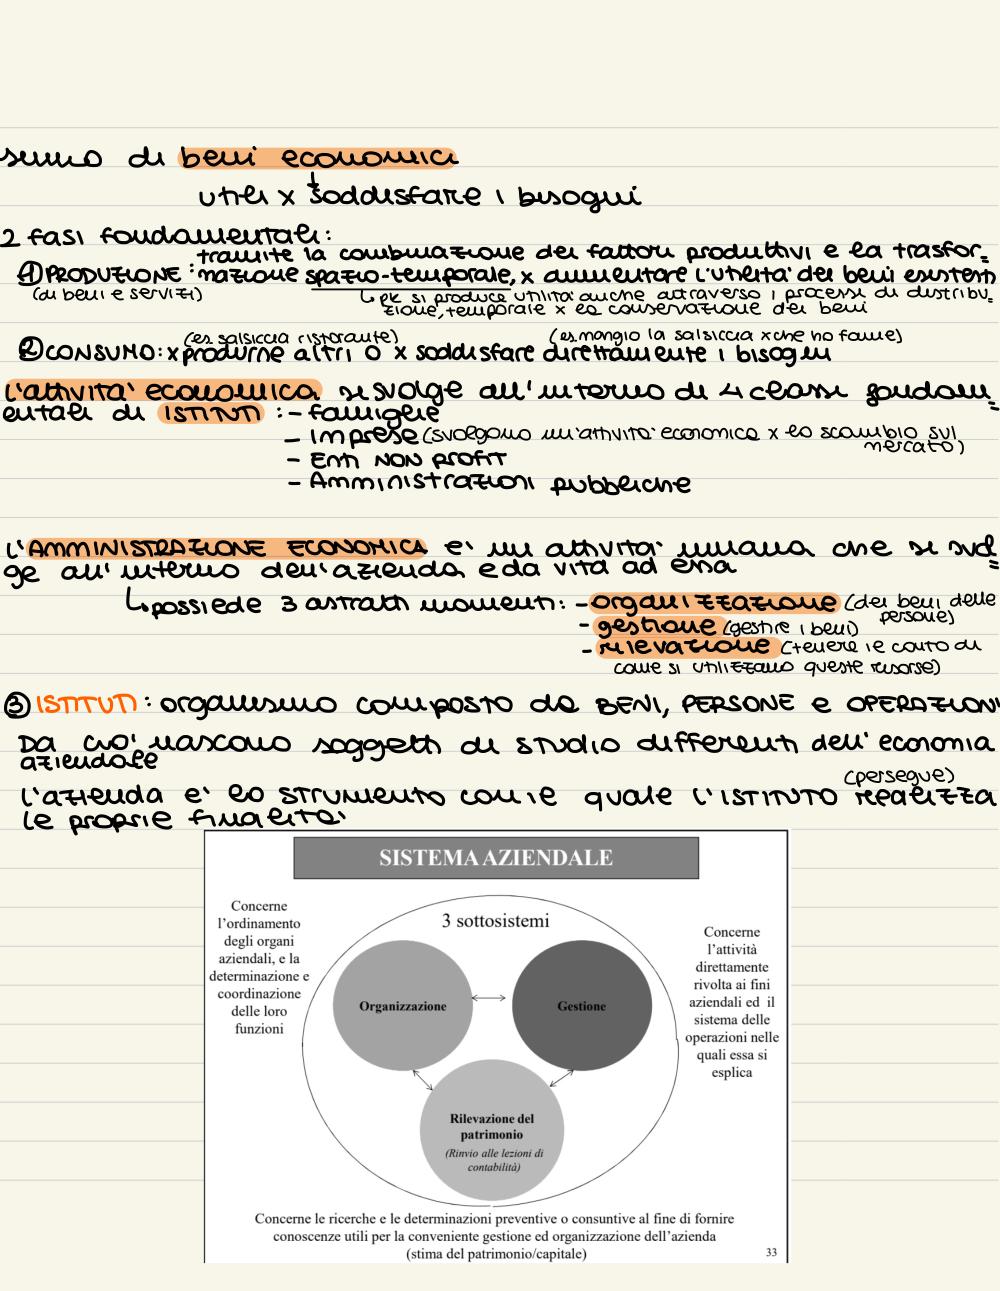 sumo di beni economici
utili x soddisfare i bisogni
2 fasi fondamentali:
tramite la combinazione dei fattori produttivi e la trasfor=
① PRODUZIONE: mazione spazio-temporale, x aumentare l'utilità dei beni esistenti
(di beni e servizi)
↳ pk si produce utilità anche attraverso i processi di distribu=
zione, temporale x es conservazione dei beni
(es salsiccia ristorante) (es mangio la salsiccia xche ho fame)
② CONSUMO: x produrne altri o x soddisfare direttamente i bisogni
l'attività economica si svolge all'interno di 4 classi fondam=
entali di ISTITUTI: - famiglie
- Imprese (svolgono un'attività economica x lo scambio sul
mercato)
- Enti NON PROFIT
- Amministrazioni pubbliche
L'AMMINISTRAZIONE ECONOMICA e' un attività umana che si svol=
ge all'interno dell'azienda e da vita ad essa
↳ possiede 3 astratti momenti: - organizzazione (dei beni delle
persone)
- gestione (gestire i beni)
- rilevazione (tenere le conto di
come si utilizzano queste risorse)
③ ISTITUTI: organismo composto da BENI, PERSONE e OPERAZIONI
Da cio' nascono soggetti di studio differenti dell'economia
aziendale
(persegue)
L'azienda e' lo strumento con ie quale l'ISTITUTO realizza
le proprie finalità
SISTEMA AZIENDALE
3 sottosistemi
Concerne
l'ordinamento
degli organi
aziendali, e la
determinazione e
coordinazione
delle loro
funzioni
Organizzazione
Gestione
Concerne
l'attività
direttamente
rivolta ai fini
aziendali ed il
sistema delle
operazioni nelle
quali essa si
esplica
Rilevazione del
patrimonio
(Rinvio alle lezioni di
contabilità)
Concerne le ricerche e le determinazioni preventive o consuntive al fine di fornire
conoscenze utili per la conveniente gestione ed organizzazione dell'azienda
(stima del patrimonio/capitale)
33